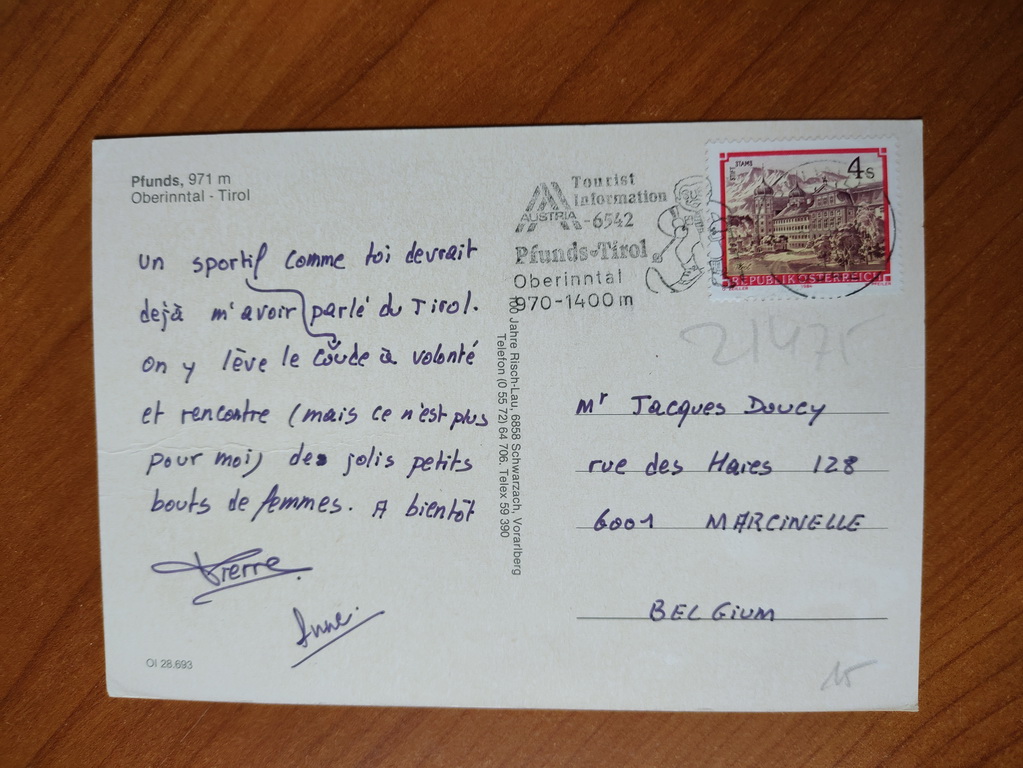 Pfunds, 971 m
Oberinntal - Tirol
un sportif comme toi devrait
dejà m'avoir parlé du Tirol.
On y lève le coude à volonté
et rencontre (mais ce n'est plus
pour moi) des jolis petits
bouts de femmes. A bientôt
Pierre
Anne.
OI 28.693
100 Jahre Risch-Lau, 6858 Schwarzach, Vorarlberg
Telefon (0 55 72) 64 706. Telex 59 390
Tourist
Information
AUSTRIA -6542
Pfunds-Tirol
Oberinntal
970-1400m
STIFT STAMS
4s
REPUBLIK ÖSTERREICH
21475
Mr Jacques Doucy
rue des Haies 128
6001 MARCINELLE
BELGIUM
15